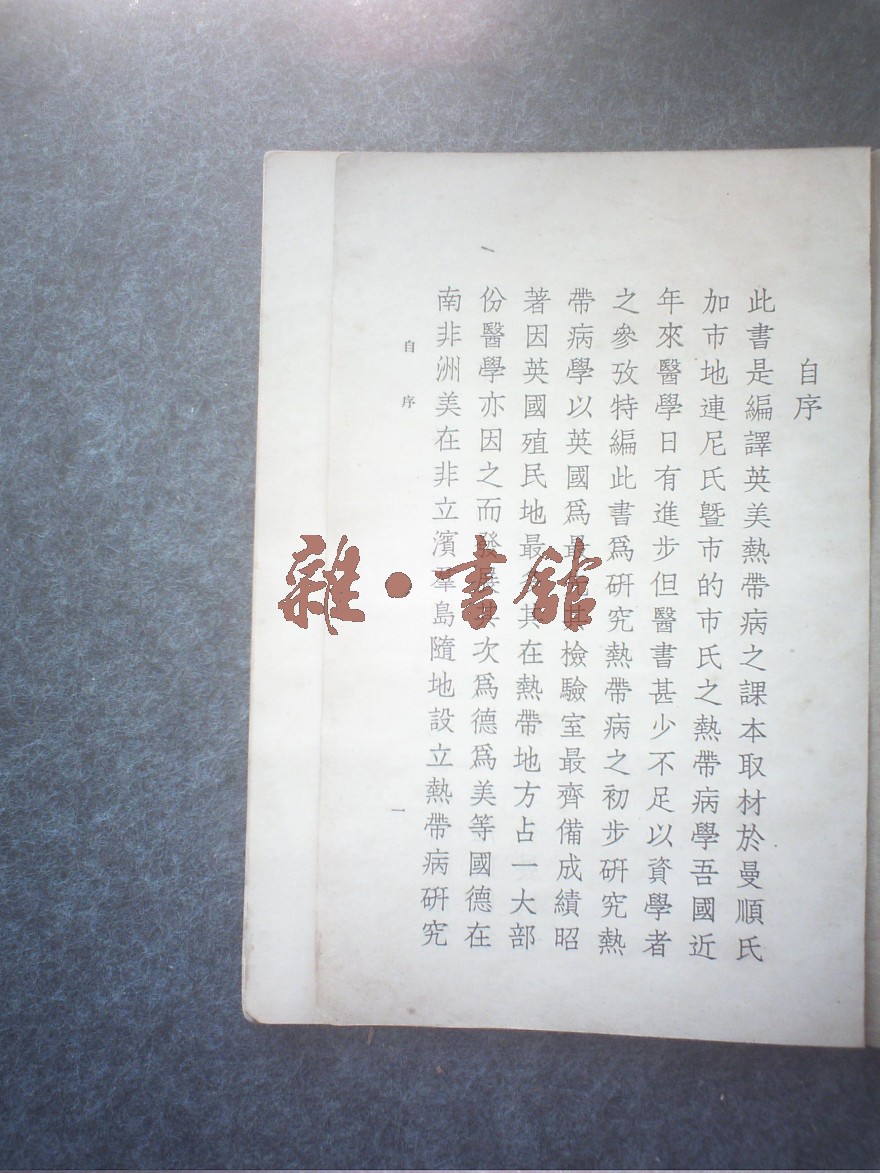 自序
此書是編譯英美熱帶病之課本取材於曼順氏
加市地連尼氏曁市的市氏之熱帶病學吾國近
年來醫學日有進步但醫書甚少不足以資學者
之參攷特編此書爲研究熱帶病之初步研究熱
帶病學以英國爲最 其檢驗室最齊備成績昭
著因英國殖民地最 其在熱帶地方占一大部
份醫學亦因之而發展其次爲德爲美等國德在
南非洲美在非立濱羣島隨地設立熱帶病研究
自序
一
雜·書館